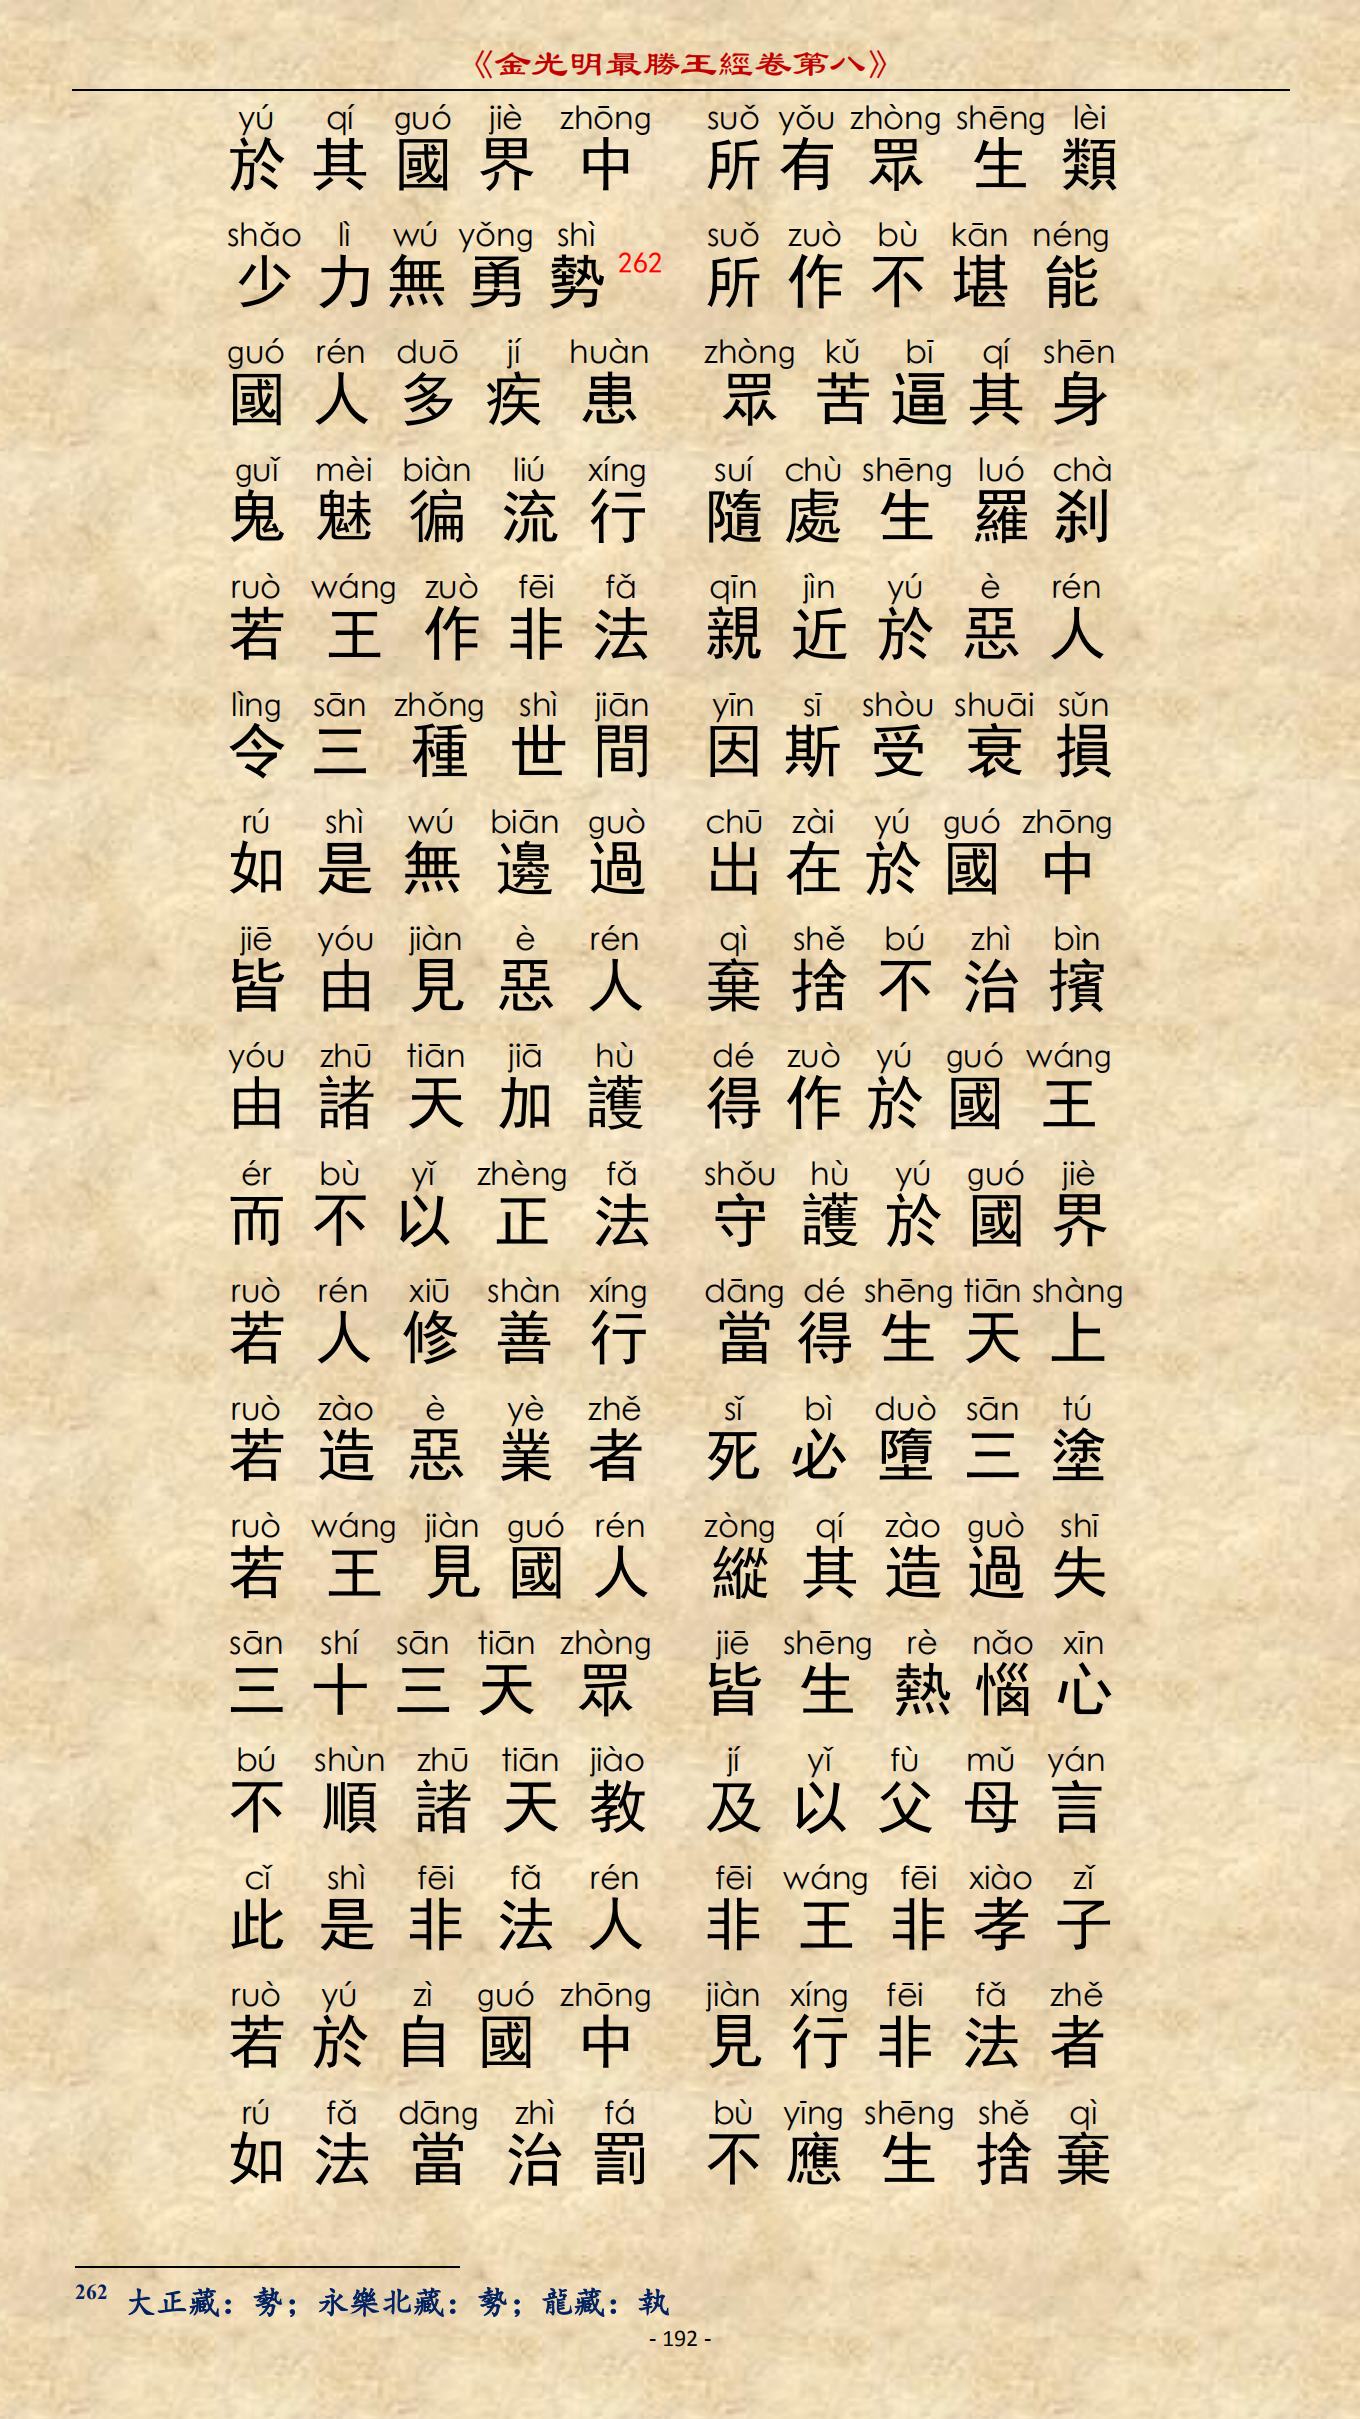 《金光明最勝王經卷第八》
yú qí guó jiè zhōng suǒ yǒu zhòng shēng lèi
於其國界中 所有眾生類
shǎo lì wú yǒng shì suǒ zuò bù kān néng
少力無勇勢262 所作不堪能
guó rén duō jí huàn zhòng kǔ bī qí shēn
國人多疾患 眾苦逼其身
guǐ mèi biàn liú xíng suí chù shēng luó chà
鬼魅徧流行 隨處生羅剎
ruò wáng zuò fēi fǎ qīn jìn yú è rén
若王作非法 親近於惡人
lìng sān zhǒng shì jiān yīn sī shòu shuāi sǔn
令三種世間 因斯受衰損
rú shì wú biān guò chū zài yú guó zhōng
如是無邊過 出在於國中
jiē yóu jiàn è rén qì shě bú zhì bìn
皆由見惡人 棄捨不治擯
yóu zhū tiān jiā hù dé zuò yú guó wáng
由諸天加護 得作於國王
ér bù yǐ zhèng fǎ shǒu hù yú guó jiè
而不以正法 守護於國界
ruò rén xiū shàn xíng dāng dé shēng tiān shàng
若人修善行 當得生天上
ruò zào è yè zhě sǐ bì duò sān tú
若造惡業者 死必墮三塗
ruò wáng jiàn guó rén zòng qí zào guò shī
若王見國人 縱其造過失
sān shí sān tiān zhòng jiē shēng rè nǎo xīn
三十三天眾 皆生熱惱心
bú shùn zhū tiān jiào jí yǐ fù mǔ yán
不順諸天教 及以父母言
cǐ shì fēi fǎ rén fēi wáng fēi xiào zǐ
此是非法人 非王非孝子
ruò yú zì guó zhōng jiàn xíng fēi fǎ zhě
若於自國中 見行非法者
rú fǎ dāng zhì fá bù yīng shēng shě qì
如法當治罰 不應生捨棄
262 大正藏：勢；永樂北藏：勢；龍藏：執
- 192 -